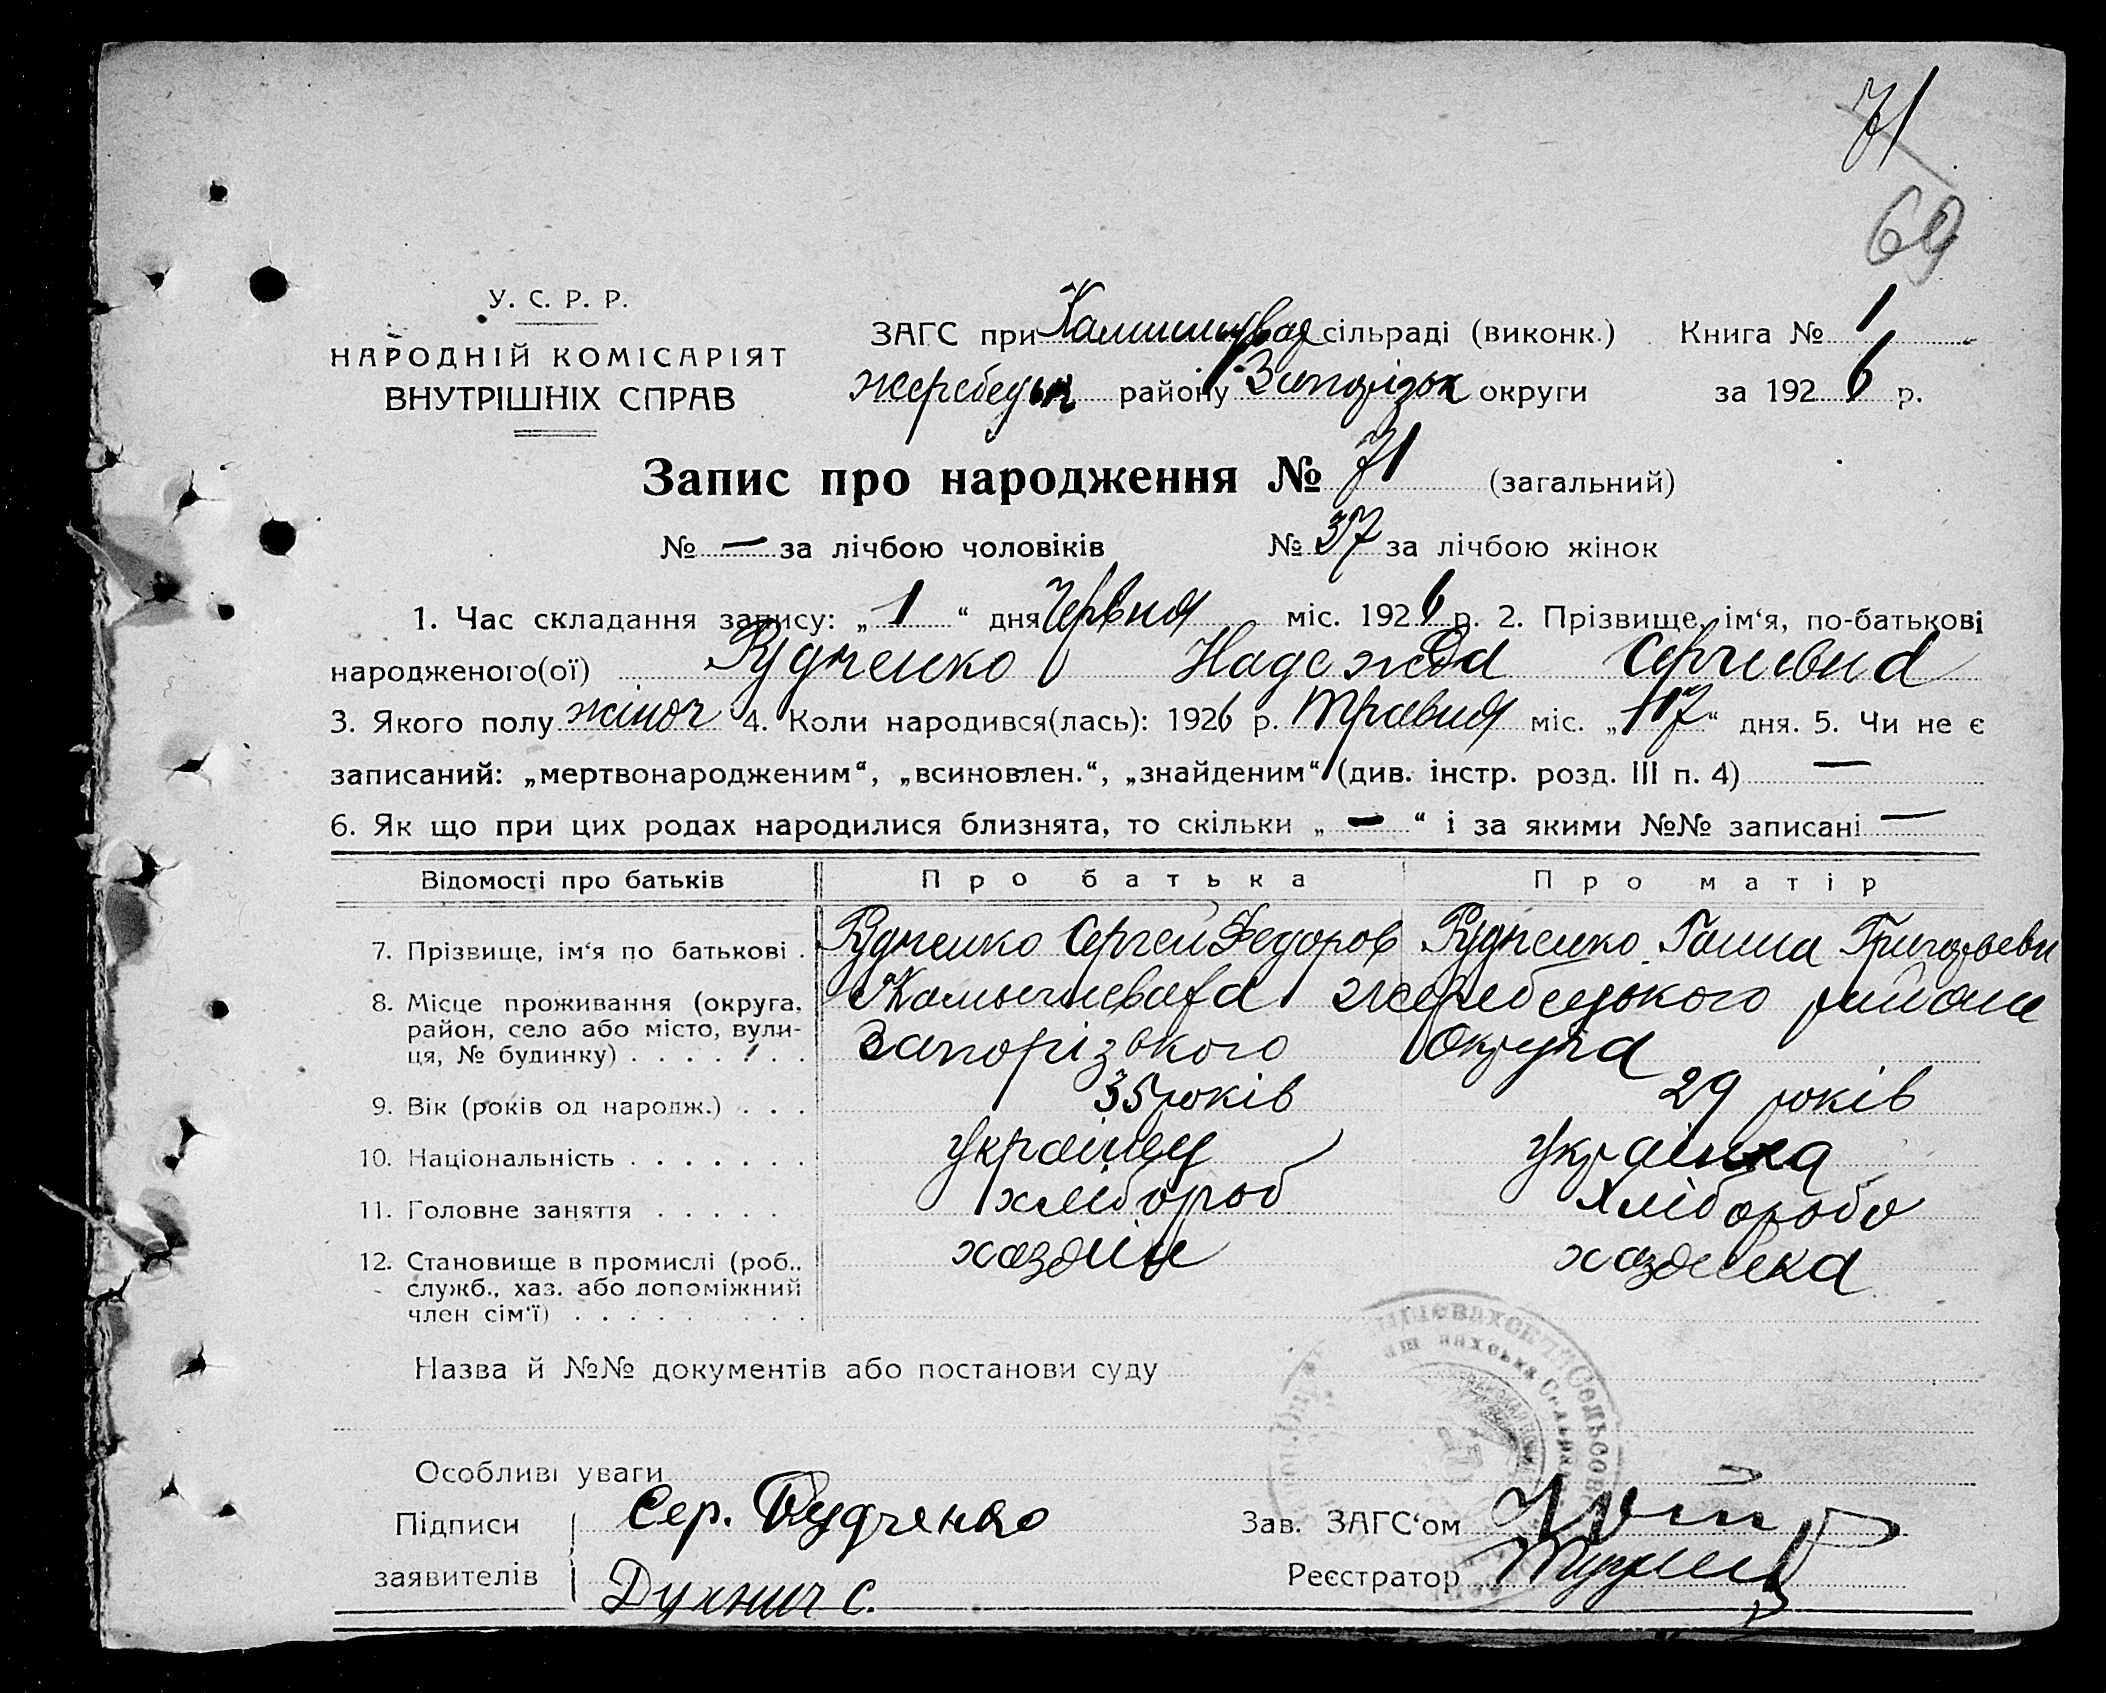 71
69
У. С. Р. Р.
НАРОДНІЙ КОМІСАРІЯТ
ВНУТРІШНІХ СПРАВ
ЗАГС при сільраді (виконк.) Книга № 1
Жеребецьк району Запорізьк округи за 1926 р.
Запис про народження № 71 (загальний)
№ — за лічбою чоловіків № 37 за лічбою жінок
1. Час складання запису: „1“ дня Червня міс. 1926 р. 2. Прізвище, ім‘я, по-батькові
народженого(ої) Рудченко Надежда Сергиевна
3. Якого полу жіноч 4. Коли народився(лась): 1926 р. травня міс. „17“ дня. 5. Чи не є
записаний: „мертвонародженим“, „всиновлен.“, „знайденим“ (див. інстр. розд. III п. 4) —
6. Як що при цих родах народилися близнята, то скільки „—“ і за якими №№ записані —
Відомості про батьків Про батька Про матір
7. Прізвище, ім‘я по батькові . Рудченко Сергей Федоров Рудченко Ганна Григорьевн
8. Місце проживання (округа, район, село або місто, вулиця, № будинку) . . . . . . . Жеребецького района
Запорізького Округа
9. Вік (років од народж.) . . . 35 років 29 років
10. Національність . . . . . . . українец українка
11. Головне заняття . . . . . хлібороб хлібороб
12. Становище в промислі (роб., служб., хаз. або допоміжний член сім‘ї) . . . . . . . . . хаздіін хаздейка
Назва й №№ документів або постанови суду
Особливі уваги
Підписи заявителів Сер. Рудченко
Духнич С.
Зав. ЗАГС‘ом
Реєстратор